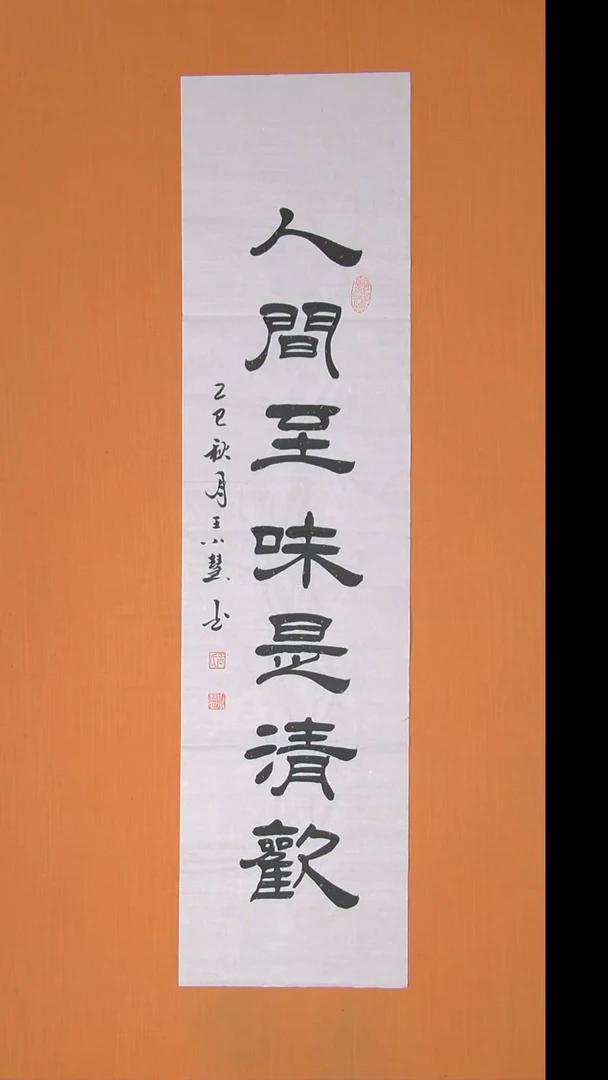 人間至味是清歡
乙巳秋月王小慧书